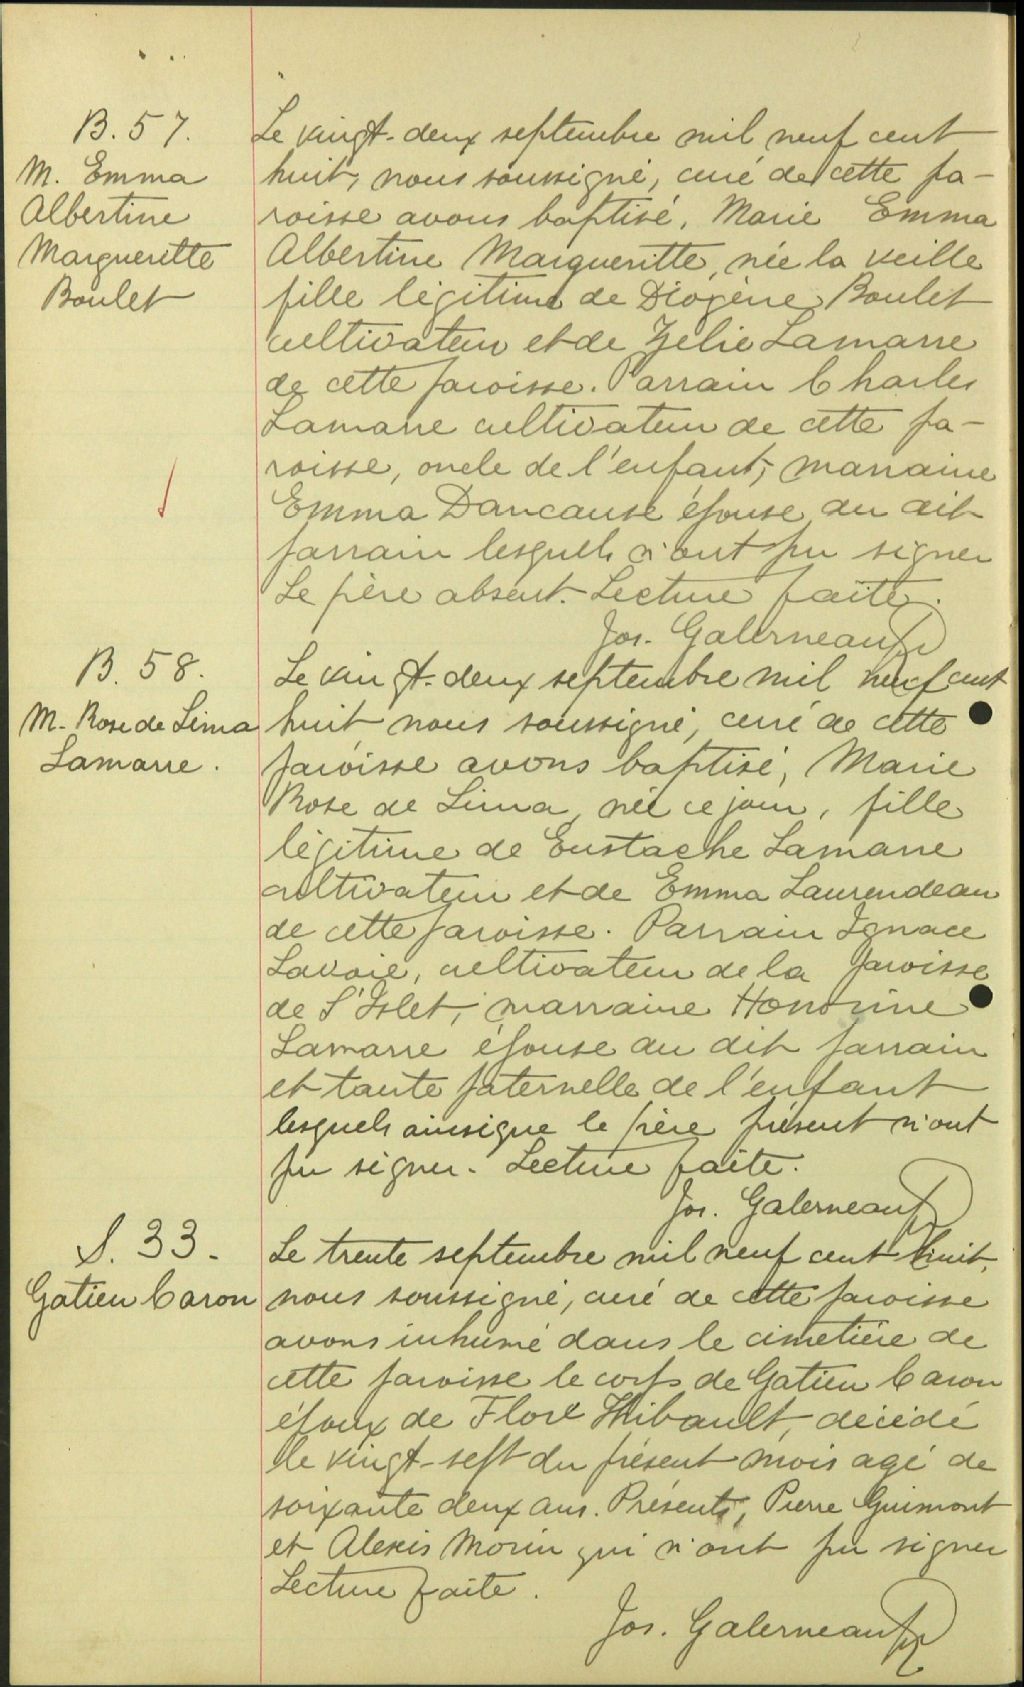 B. 57.
M. Emma
Albertine
Margueritte
Boulet
Le vingt-deux septembre mil neuf cent
huit, nous soussigné, curé de cette pa-
roisse avons baptisé, Marie Emma
Albertine Margueritte, née la veille
fille légitime de Diogène Boulet
cultivateur et de Zelie Lamarre
de cette paroisse. Parrain Charles
Lamarre cultivateur de cette pa-
roisse, oncle de l'enfant, marraine
Emma Dancause épouse du dit
parrain lesquels n'ont pu signer
Le père absent. Lecture faite.
Jos. Galerneau Ptr
B. 58.
M. Rose de Lima
Lamarre.
Le vingt-deux septembre mil neuf cent
huit nous soussigné, curé de cette
paroisse avons baptisé, Marie
Rose de Lima, née ce jour, fille
légitime de Eustache Lamarre
cultivateur et de Emma Laurendeau
de cette paroisse. Parrain Ignace
Lavoie, cultivateur de la paroisse
de L'Islet, marraine Honorine
Lamarre épouse du dit parrain
et tante paternelle de l'enfant
lesquels ainsi que le père présent n'ont
pu signer. Lecture faite.
Jos. Galerneau Ptr
S. 33.
Gatien Caron
Le trente septembre mil neuf cent huit,
nous soussigné, curé de cette paroisse
avons inhumé dans le cimetière de
cette paroisse le corps de Gatien Caron
époux de Flore Thibault, décédé
le vingt-sept du présent mois agé de
soixante deux ans. Présents, Pierre Guimont
et Alexis Morin qui n'ont pu signer
Lecture faite.
Jos. Galerneau Ptr